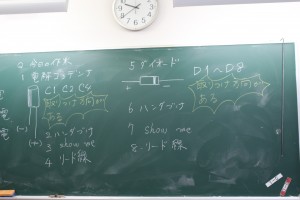 今日の作業
1 電解コンデンサ
C1 C2 C4
取りつけ方向が
ある
(-)
(+)
2 ハンダづけ
3 show me
4 リード線
5 ダイオード
+
-
6 ハンダづけ
7 show me
8 リード線
D1〜D8
取りつけ方向が
ある
電
電